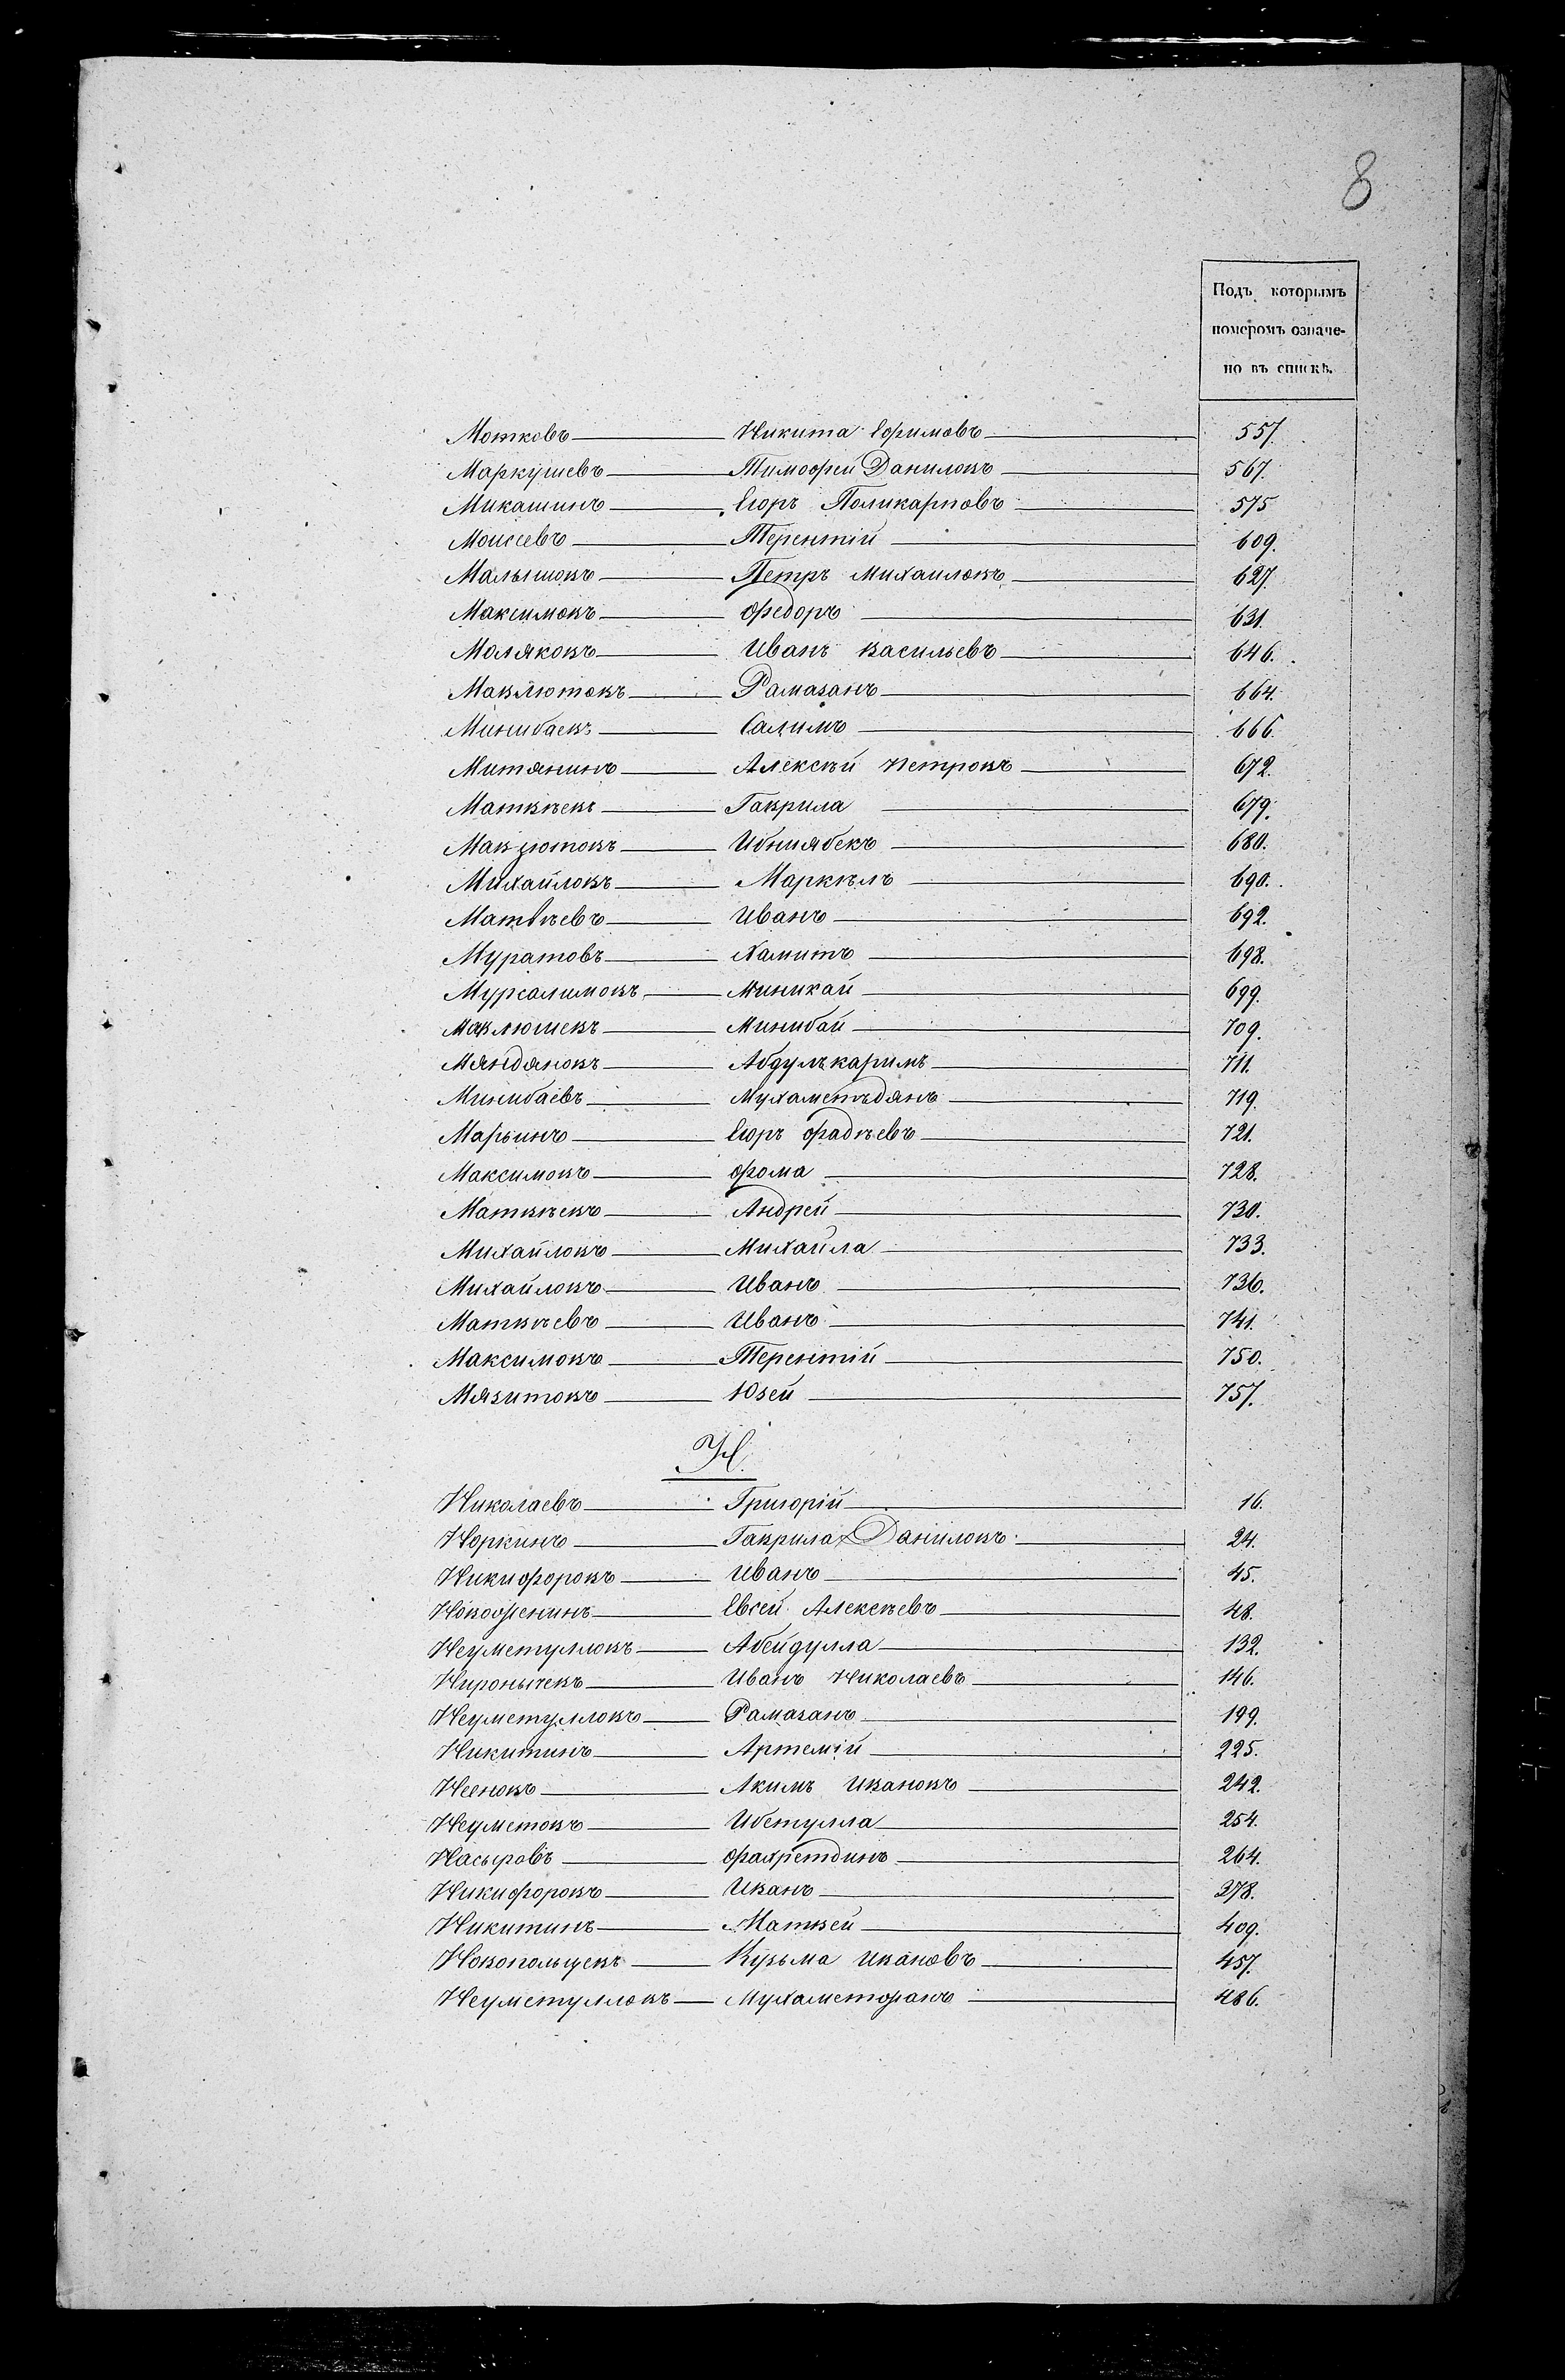 8
Подъ которымъ
номеромъ означе-
но въ спискѣ.
Мотковъ Никита Ефимовъ 557.
Маркушевъ Тимофей Даниловъ 567.
Микашинъ Егоръ Поликарповъ 575
Моисеевъ Терентій 609.
Малышовъ Петръ Михаиловъ 627.
Максимовъ Федоръ 631.
Моляковъ Иванъ Васильевъ 646.
Маклютовъ Рамазанъ 664.
Минибаевъ Салимъ 666.
Митянинъ Алексѣй Петровъ 672.
Матвѣевъ Гаврила 679.
Макзютовъ Ибниябекъ 680.
Михайловъ Маркѣлъ 690.
Матвѣевъ Иванъ 692.
Муратовъ Хамитъ 698.
Мурсалимовъ Миникай 699.
Минибай 709.
Мяндяновъ Абдулъкаримъ 711.
Минибаевъ Мухаметъдянъ 719.
Марьинъ Егоръ Фадѣевъ 721.
Максимовъ Фома 728.
Матвѣевъ Андрей 730.
Михайловъ Михайла 733.
Михайловъ Иванъ 736.
Матвѣевъ Иванъ 741.
Максимовъ Терентій 750.
Мязитовъ Юзей 757.
Н.
Николаевъ Григорій 16.
Норкинъ Гаврила Даниловъ 24.
Никифоровъ Иванъ 45.
Новоженинъ Евсей Алексѣевъ 48.
Неуметулловъ Абейдулла 132.
Ниронычевъ Иванъ Николаевъ 146.
Неуметулловъ Рамазанъ 199.
Никитинъ Артемій 225.
Неѣновъ Акимъ Ивановъ 242.
Неуметовъ Ибетулла 254.
Насыровъ Фахретдинъ 264.
Никифоровъ Иванъ 378.
Никитинъ Матвей 409.
Новопольцевъ Кузьма Ивановъ 457.
Неуметулловъ 486.